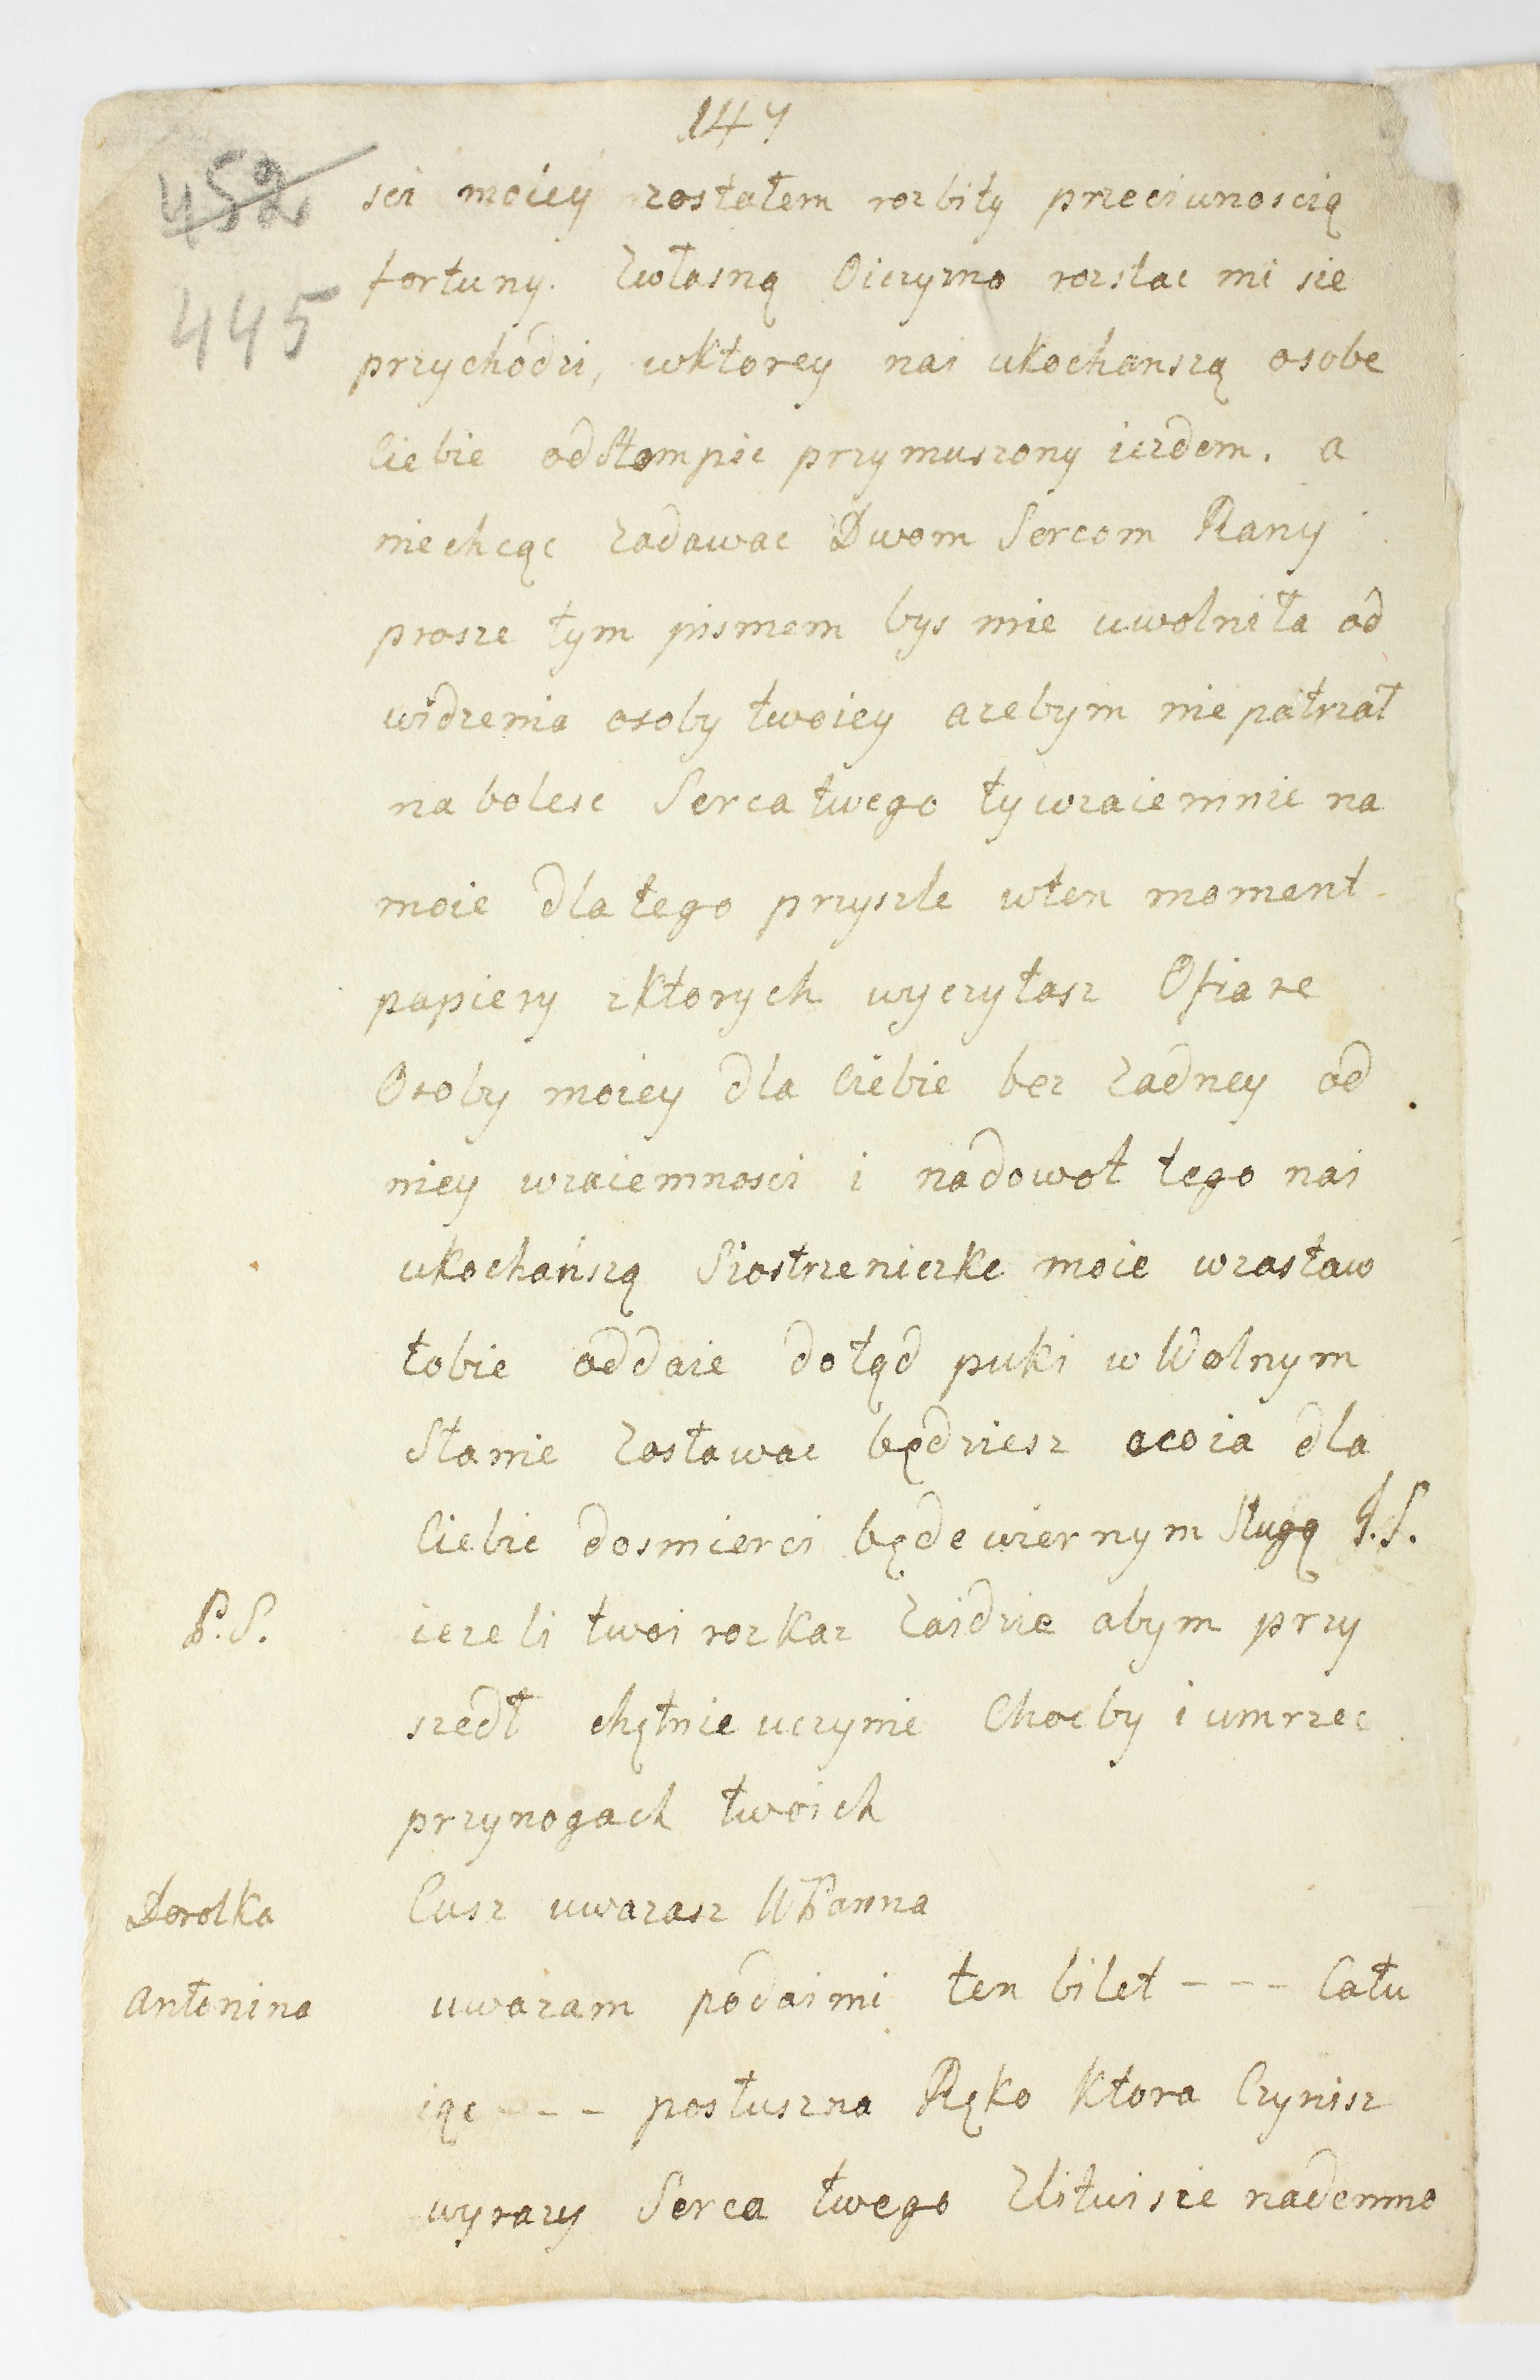 147
452
445
sci moiey zostałem rozbity przeciwnoscią
fortuny. Zwłasną Oiczyzno rozstac mi sie
przychodzi, wktorey nai ukochanszą osobe
Ciebie odstompic przymuszony iezdem. a
niechcąc zadawac Dwom Sercom Rany
prosze tym pismem bys mie uwolniła od
widzenia osoby twoiey azebym niepatrzał
na bolesc Serca twego ty wzaiemnie na
moie dla tego przyszle wten moment
papiery zktorych wyczytasz Ofiare
Osoby moiey dla Ciebie bez Zadney od
niey wzaiemnosci i nadowot tego nai
ukochańszą Siostrzeniczke moie wzastaw
tobie oddaie dotąd puki w Wolnym
Stanie Zostawac będziesz acoia dla
Ciebie dosmierci będe wiernym Sługą J.S.
P.S. iezeli twoi rozkaz Zaidzie abym przy
szedł chętnie uczynie Chocby i umrzec
przynogach twoich
Dorotka Cusz uwazasz WPanna
Antonina uwazam podaimi ten bilet - - - Cału
iąc - - - posłuszna Ręko Ktora Czynisz
wyrazy Serca twego Zlitui sie nademno